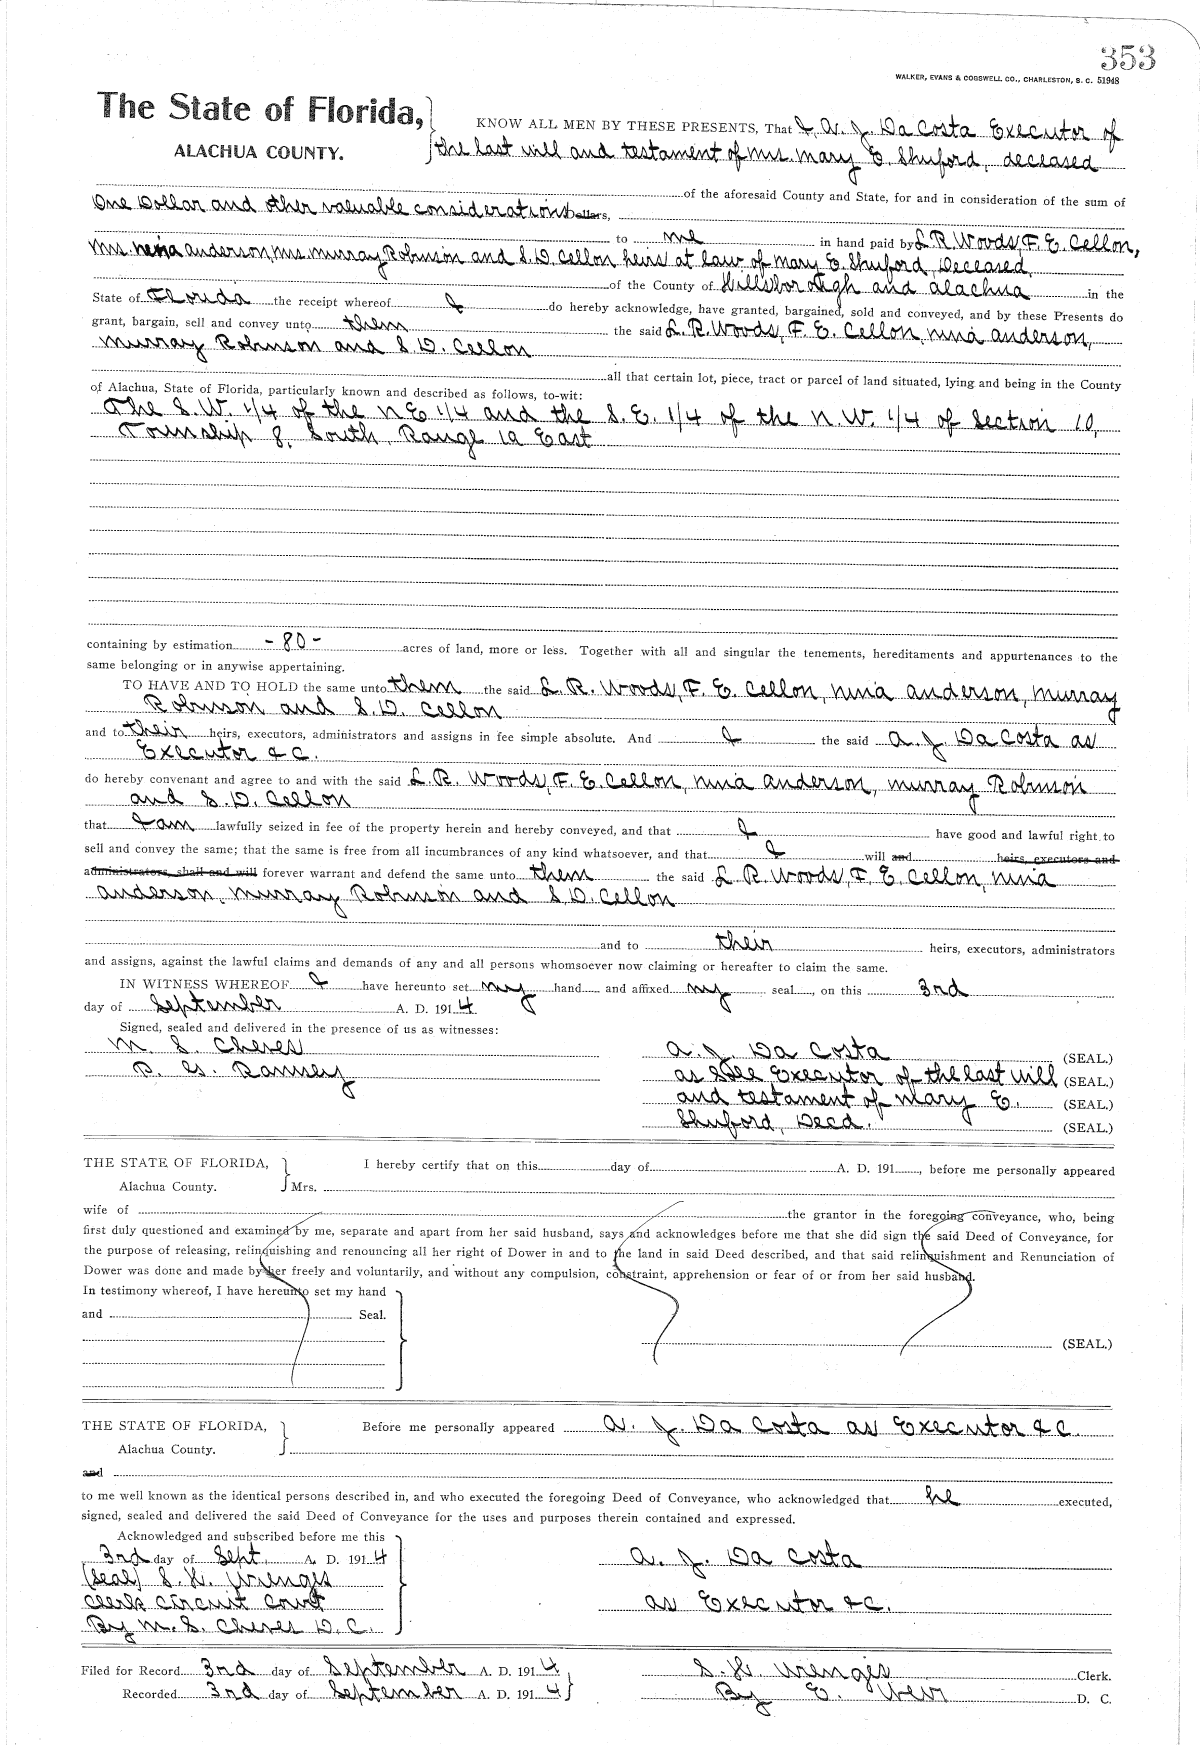 353
WALKER, EVANS & COGSWELL CO., CHARLESTON, S. C. 51948
The State of Florida,
ALACHUA COUNTY.
KNOW ALL MEN BY THESE PRESENTS, That I, A. J. Da Costa Executor of
the last will and testament of Mrs. Mary E. Shuford, deceased
of the aforesaid County and State, for and in consideration of the sum of
One Dollar and other valuable considerations Dollars,
to me in hand paid by L R. Woods, F. E. Cellon,
Mrs. Nina Anderson, Mrs. Murray Robinson and S. D. Cellon heirs at law of Mary E. Shuford, Deceased,
of the County of Hillsborough and Alachua in the
State of Florida the receipt whereof I do hereby acknowledge, have granted, bargained, sold and conveyed, and by these Presents do
grant, bargain, sell and convey unto them the said L. R. Woods, F. E. Cellon, Nina Anderson,
Murray Robinson and S. D. Cellon
all that certain lot, piece, tract or parcel of land situated, lying and being in the County
of Alachua, State of Florida, particularly known and described as follows, to-wit:
The S. W. 1/4 of the N E 1/4 and the S. E. 1/4 of the N. W. 1/4 of Section 10,
Township 8, South, Range 19 East
containing by estimation - 80 - acres of land, more or less. Together with all and singular the tenements, hereditaments and appurtenances to the
same belonging or in anywise appertaining.
TO HAVE AND TO HOLD the same unto them the said L. R. Woods, F. E. Cellon, Nina Anderson, Murray
Robinson and S. D. Cellon
and to their heirs, executors, administrators and assigns in fee simple absolute. And I the said A. J. Da Costa as
Executor & C.
do hereby convenant and agree to and with the said L. R. Woods, F. E. Cellon, Nina Anderson, Murray Robinson
and S. D. Cellon
that I am lawfully seized in fee of the property herein and hereby conveyed, and that I have good and lawful right to
sell and convey the same; that the same is free from all incumbrances of any kind whatsoever, and that I will and heirs, executors and
administrators, shall and will forever warrant and defend the same unto them the said L. R. Woods, F. E. Cellon, Nina
Anderson, Murray Robinson and S. D. Cellon
and to their heirs, executors, administrators
and assigns, against the lawful claims and demands of any and all persons whomsoever now claiming or hereafter to claim the same.
IN WITNESS WHEREOF I have hereunto set my hand and affixed my seal, on this 3rd
day of September A. D. 1914.
Signed, sealed and delivered in the presence of us as witnesses:
M. S. Cheves A. J. Da Costa (SEAL.)
Ramsey as Sole Executor of the last will (SEAL.)
and testament of Mary E. (SEAL.)
Shuford, Decd. (SEAL.)
THE STATE OF FLORIDA, I hereby certify that on this day of A. D. 191 , before me personally appeared
Alachua County. Mrs.
wife of the grantor in the foregoing conveyance, who, being
first duly questioned and examined by me, separate and apart from her said husband, says and acknowledges before me that she did sign the said Deed of Conveyance, for
the purpose of releasing, relinquishing and renouncing all her right of Dower in and to the land in said Deed described, and that said relinquishment and Renunciation of
Dower was done and made by her freely and voluntarily, and without any compulsion, constraint, apprehension or fear of or from her said husband.
In testimony whereof, I have hereunto set my hand
and Seal.
(SEAL.)
THE STATE OF FLORIDA, Before me personally appeared A. J. Da Costa as Executor & C.
Alachua County.
and
to me well known as the identical persons described in, and who executed the foregoing Deed of Conveyance, who acknowledged that he executed,
signed, sealed and delivered the said Deed of Conveyance for the uses and purposes therein contained and expressed.
Acknowledged and subscribed before me this
3rd day of Sept. A. D. 1914 A. J. Da Costa
(Seal) S. H. Wienges
Clerk Circuit Court as Executor & C.
By M. S. Cheves D. C.
Filed for Record 3rd day of September A. D. 1914 S. H. Wienges Clerk.
Recorded 3rd day of September A. D. 1914 By E. Weir D. C.